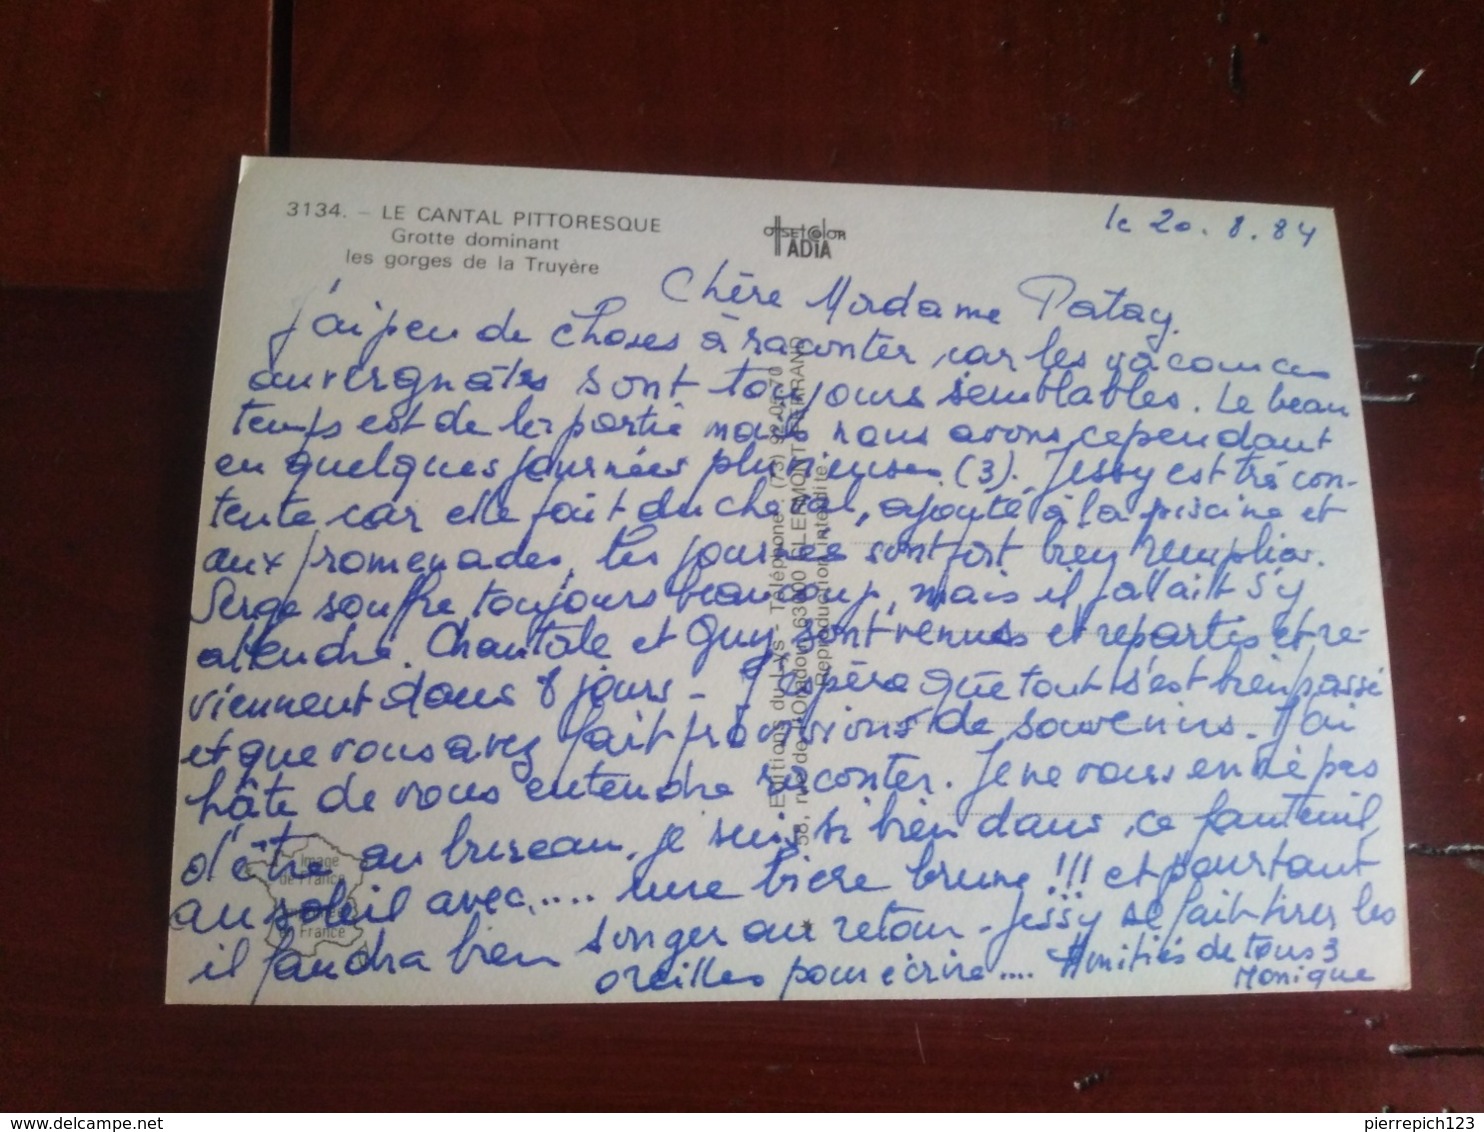 3134. - LE CANTAL PITTORESQUE
Grotte dominant
les gorges de la Truyère
OffSET COLOR
ADIA
le 20.8.84
Chère Madame Patay.
J'ai peu de choses à raconter car les vacances
auvergnates sont toujours semblables. Le beau
temps est de la partie mais nous avons cependant
eu quelques journées pluvieuses (3). Jessy est très con-
tente car elle fait du cheval, ajouté à la piscine et
aux promenades, les journées sont fort bien remplies.
Serge souffre toujours beaucoup, mais il fallait s'y
attendre. Chantale et Guy sont venus et repartis et re-
viennent dans 8 jours - J'espère que tout s'est bien passé
et que vous avez fait provisions de souvenirs. J'ai
hâte de vous entendre raconter. Je ne vous envie pas
d'être au bureau, je suis si bien dans ce fauteuil,
au soleil avec..... une bière brune !!! et pourtant
il faudra bien songer au retour - Jessy se fait tirer les
oreilles pour écrire.... Amitiés de tous 3
Monique
Editions du Lys - Téléphone : (73)
63000 CLERMONT-FERRAND
Reproduction interdite
Image
de France
de France
pierrepich123